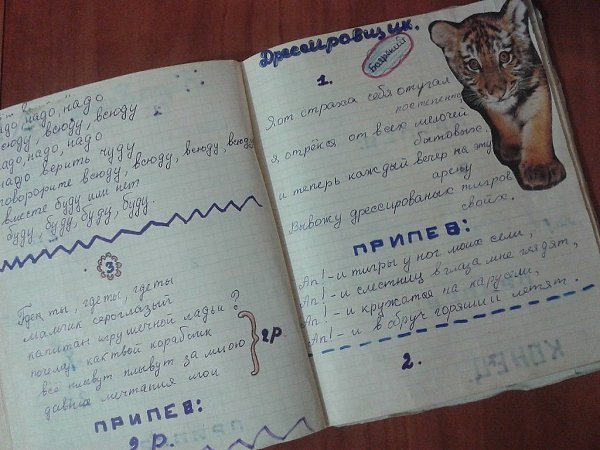 адо, надо, надо
сюду, всюду, всюду
адо, надо, надо
надо верить чуду
говорорите всюду, всюду, всюду, всюду
вместе буду или нет
буду, буду, буду, буду.
3
Где ты, где ты, где ты
мальчик сероглазый
капитан игрушечной ладьи?
почему как твой кораблик
всё плывут плывут за мною
давние мечтания мои
2р.
ПРИПЕВ:
2 р.
Дрессировщик.
Боярский
1.
Я от страха себя отучал
постепенно
я отрёкся от всех мелочей
бытовых,
и теперь каждый вечер на эту
арену
Вывожу дрессированых тигров
своих.
ПРИПЕВ:
Ап! - и тигры у ног моих сели,
Ап! - и с лестниц в глаза мне глядят,
Ап! - и кружатся на карусели,
Ап! - и в обруч горящий летят.
2.
КОНЕЦ